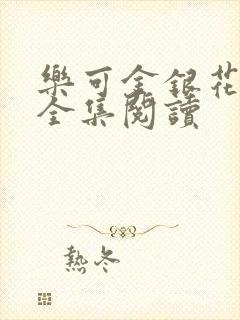 樂可金銀花
全集閱讀
熱冬